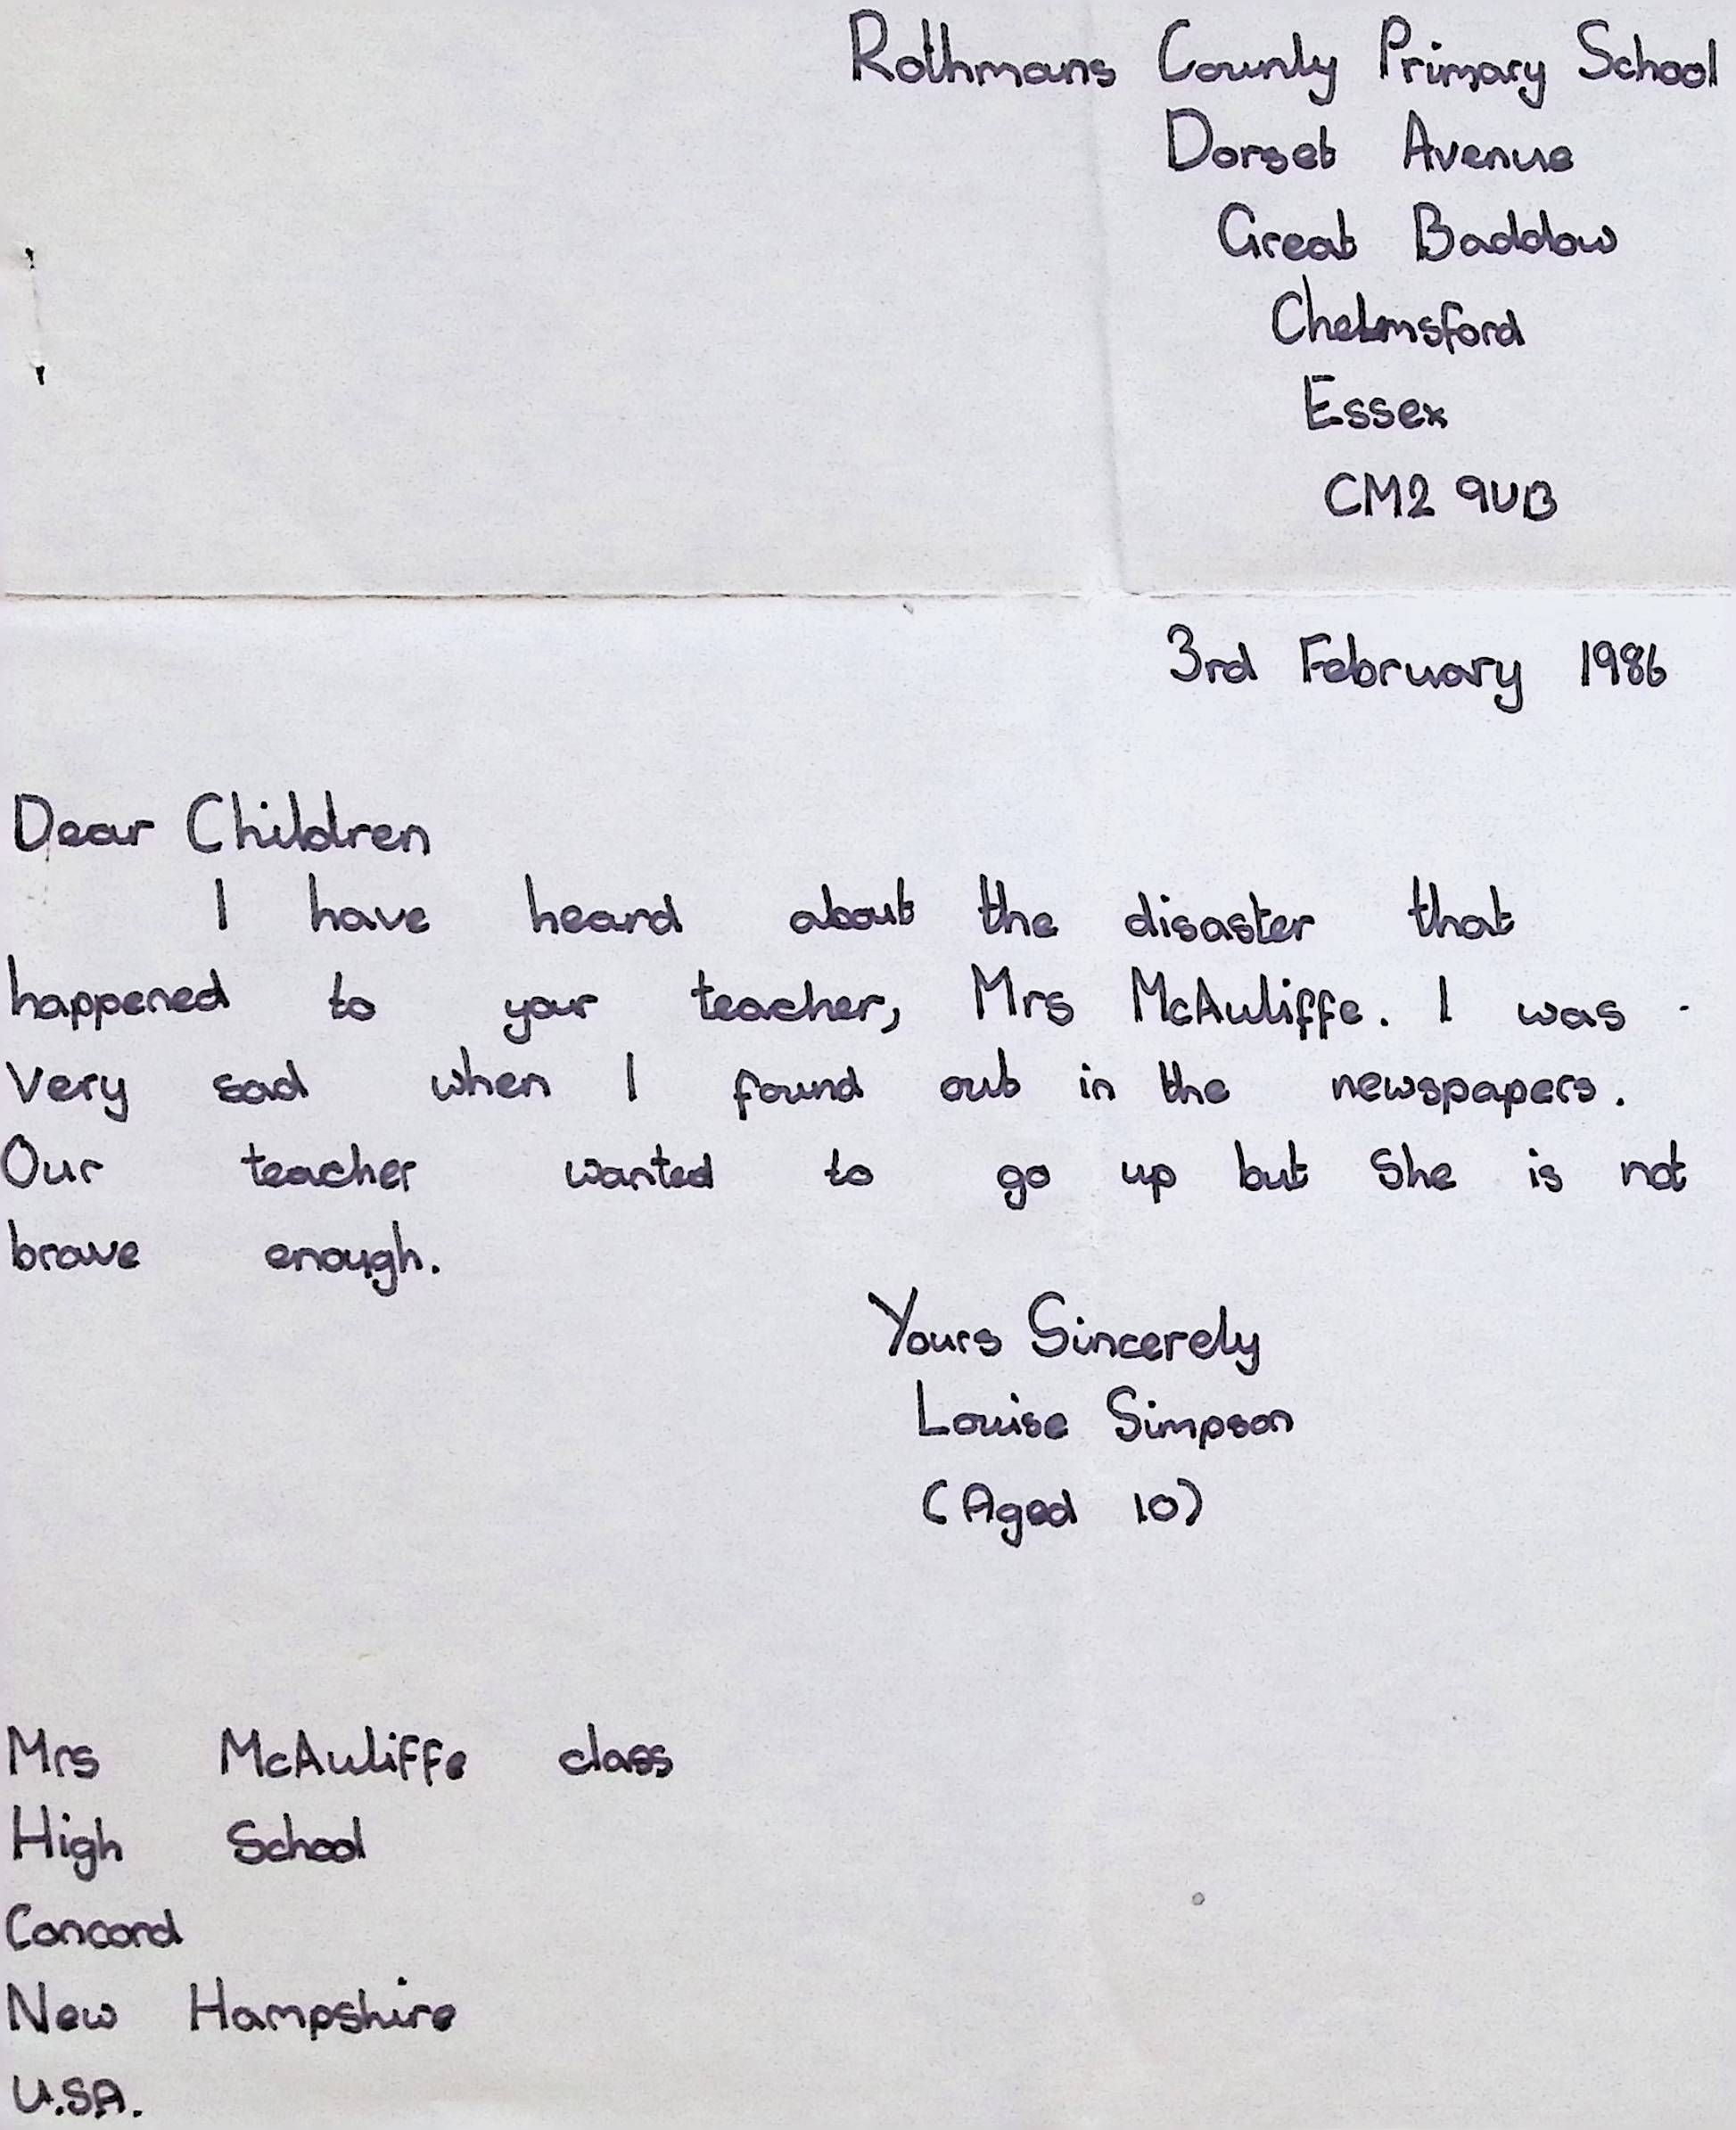 Rothmans County Primary School
Dorset Avenue
Great Baddow
Chelmsford
Essex
CM2 9UB
3rd February 1986
Dear Children
I have heard about the disaster that
happened to your teacher, Mrs McAuliffe. I was
very sad when I found out in the newspapers.
Our teacher wanted to go up but She is not
brave enough.
Yours Sincerely
Louise Simpson
(Aged 10)
Mrs McAuliffe class
High School
Concord
New Hampshire
U.S.A.